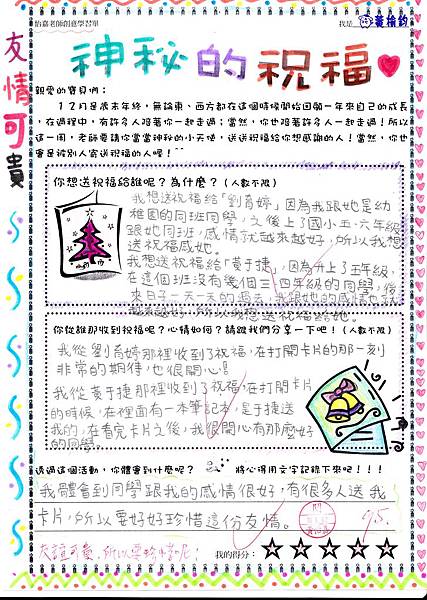 怡嘉老師創意學習單
我是
神秘的祝福
友情可貴
親愛的寶貝們：
12月是歲末年終，無論東、西方都在這個時候開始回顧一年來自己的成長
，在過程中，有許多人陪著你一起走過；當然，你也陪著許多人一起走過！所以
這一周，老師要請你當當神秘的小天使，送送祝福給你想感謝的人！當然，你也
會是被別人寄送祝福的人喔！^^
你想送祝福給誰呢？為什麼？(人數不限)
我想送祝福給「劉育婷」，因為我跟她是幼
稚園的同班同學，之後上了國小五、六年級
跟她同班，感情就越來越好，所以我想
送祝福感她。
我想送祝福給「黃于捷」，因為升上了五年級，
在這個班沒有幾個三、四年級的同學，後
來日子一天一天的過去，我跟她的感情也就
越來越好，所以我想送祝福給她。
你從誰那收到祝福呢？心情如何？請跟我們分享一下吧！(人數不限)
我從劉育婷那裡收到了祝福，在打開卡片的那一刻
非常的期待，也很開心！
我從黃于捷那裡收到了祝福，在打開卡片
的時候，在裡面有一本筆記本，是于捷送
我的，在看完卡片之後，我很開心有那麼好
的同學。
透過這個活動，你體會到什麼呢？
將心得用文字記錄下來吧！！！
我體會到同學跟我的感情很好，有很多人送我
卡片，所以要好好珍惜這份友情。
95.
友誼可貴，所以要珍惜呢！
我的得分：